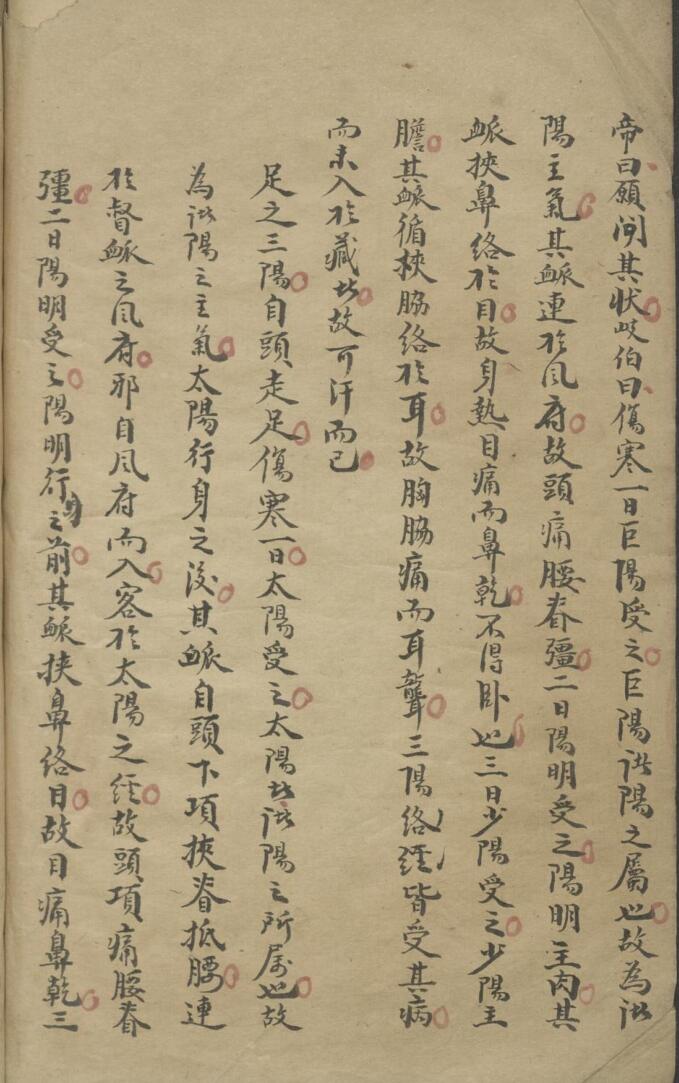 帝曰願聞其狀岐伯曰傷寒一日巨陽受之巨陽諸陽之屬也故為諸
陽主氣其脈連於風府故頭痛腰脊彊二日陽明受之陽明主肉其
脈挾鼻絡於目故身熱目痛而鼻乾不得卧也三日少陽受之少陽主
膽其脈循挾脇絡於耳故胸脇痛而耳聾三陽絡經皆受其病
而未入於藏者故可汗而已
足之三陽自頭走足傷寒一日太陽受之太陽者諸陽之所屬也故
為諸陽之主氣太陽行身之後其脈自頭下項挾脊抵腰連
於督脈之風府邪自風府而入客於太陽之經故頭項痛腰脊
彊二日陽明受之陽明行身之前其脈挾鼻絡目故目痛鼻乾三